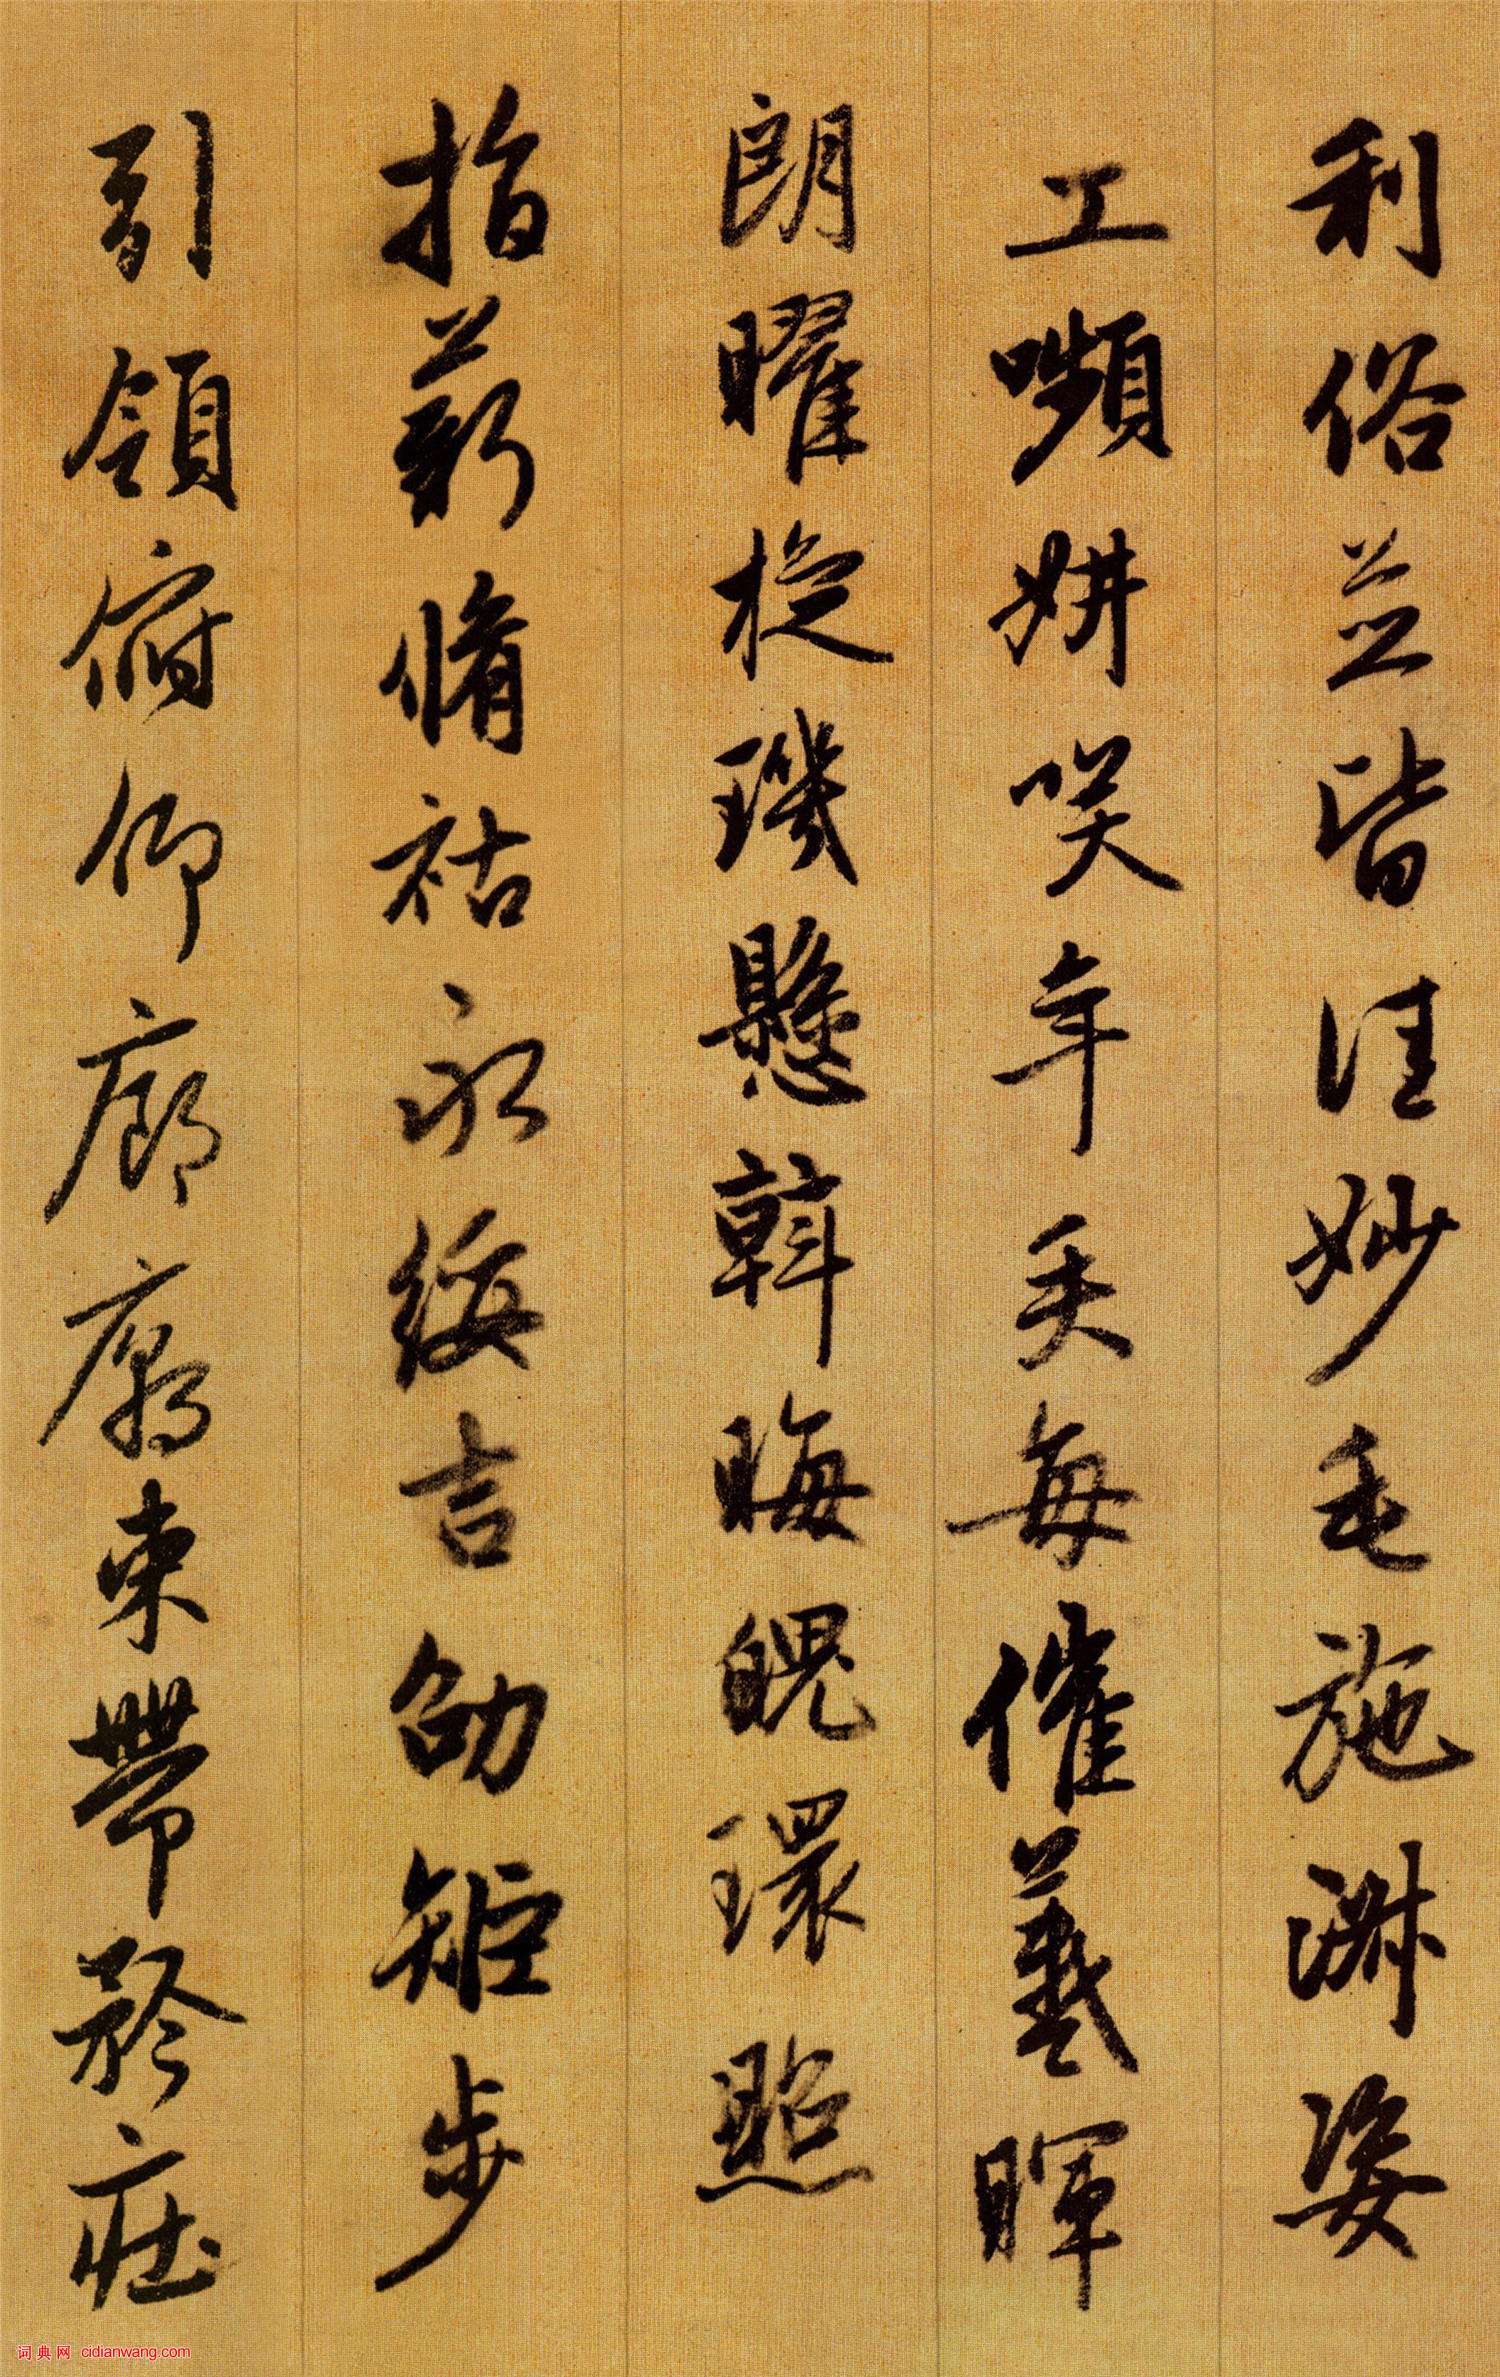 利俗並皆佳妙毛施淑姿
工嚬妍咲年矢每催羲暉
朗曜旋璣懸斡晦魄環照
指薪脩祜永綏吉劭矩步
引領俯仰廊廟束帶矜莊
词典网 cidianwang.com